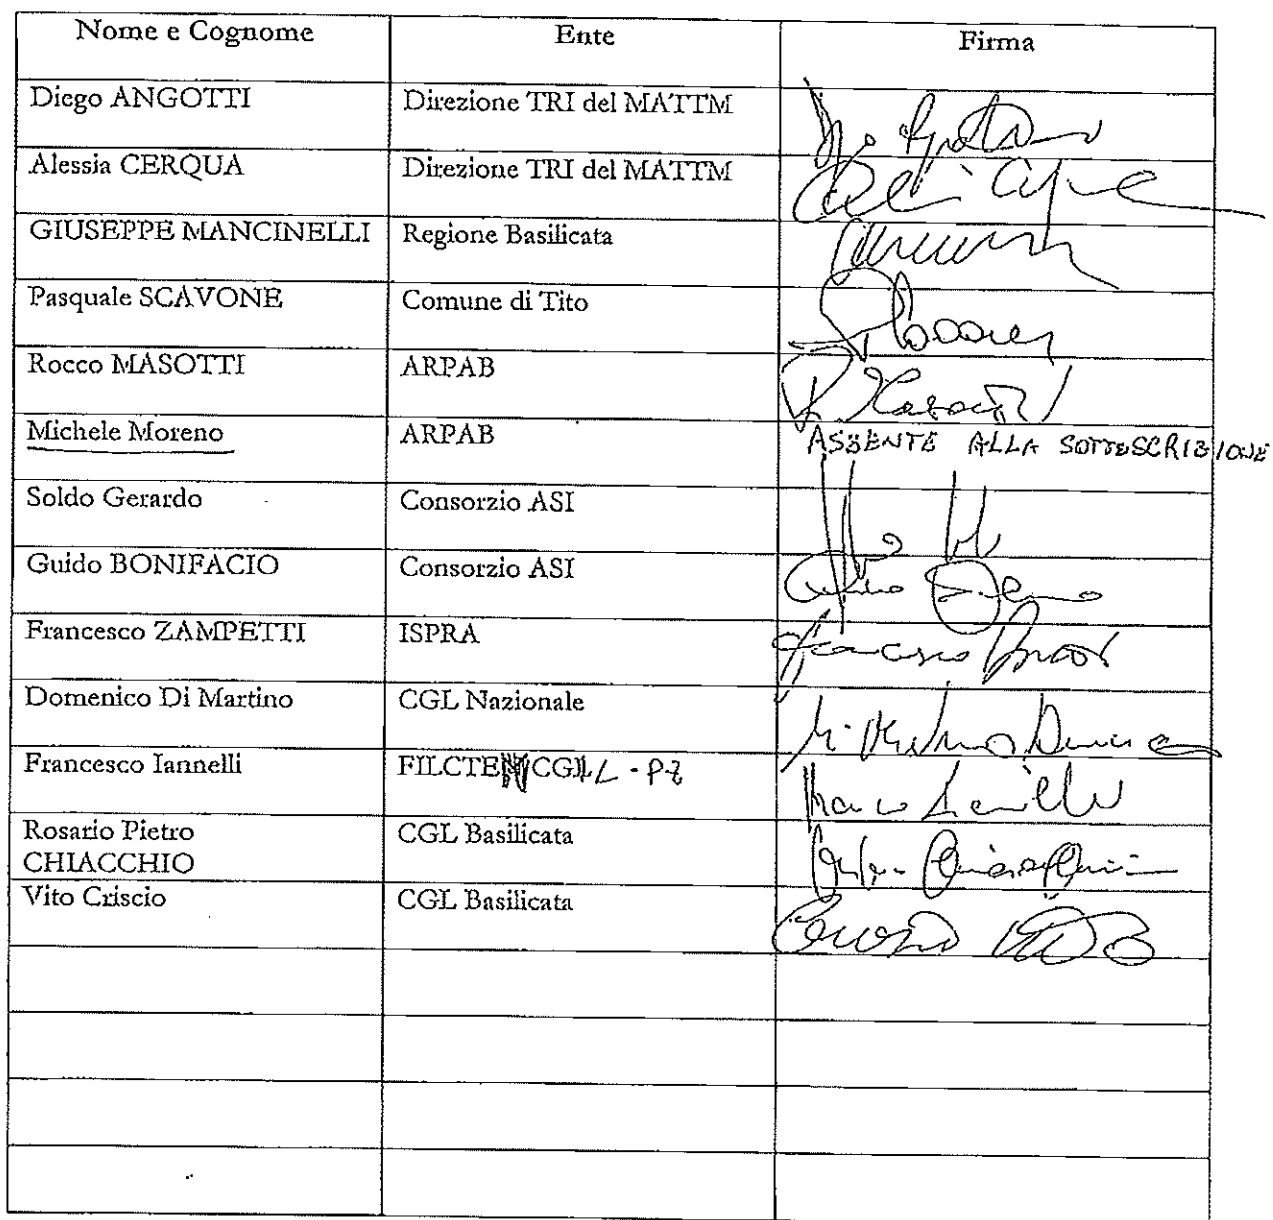 Nome e Cognome Ente Firma
Diego ANGOTTI Direzione TRI del MATTM
Alessia CERQUA Direzione TRI del MATTM
GIUSEPPE MANCINELLI Regione Basilicata
Pasquale SCAVONE Comune di Tito
Rocco MASOTTI ARPAB
Michele Moreno ARPAB ASSENTE ALLA SOTTOSCRIZIONE
Soldo Gerardo Consorzio ASI
Guido BONIFACIO Consorzio ASI
Francesco ZAMPETTI ISPRA Francesco
Domenico Di Martino CGL Nazionale
Francesco Iannelli FILCTEM CGIL - PZ
Rosario Pietro
CHIACCHIO CGL Basilicata
Vito Criscio CGL Basilicata